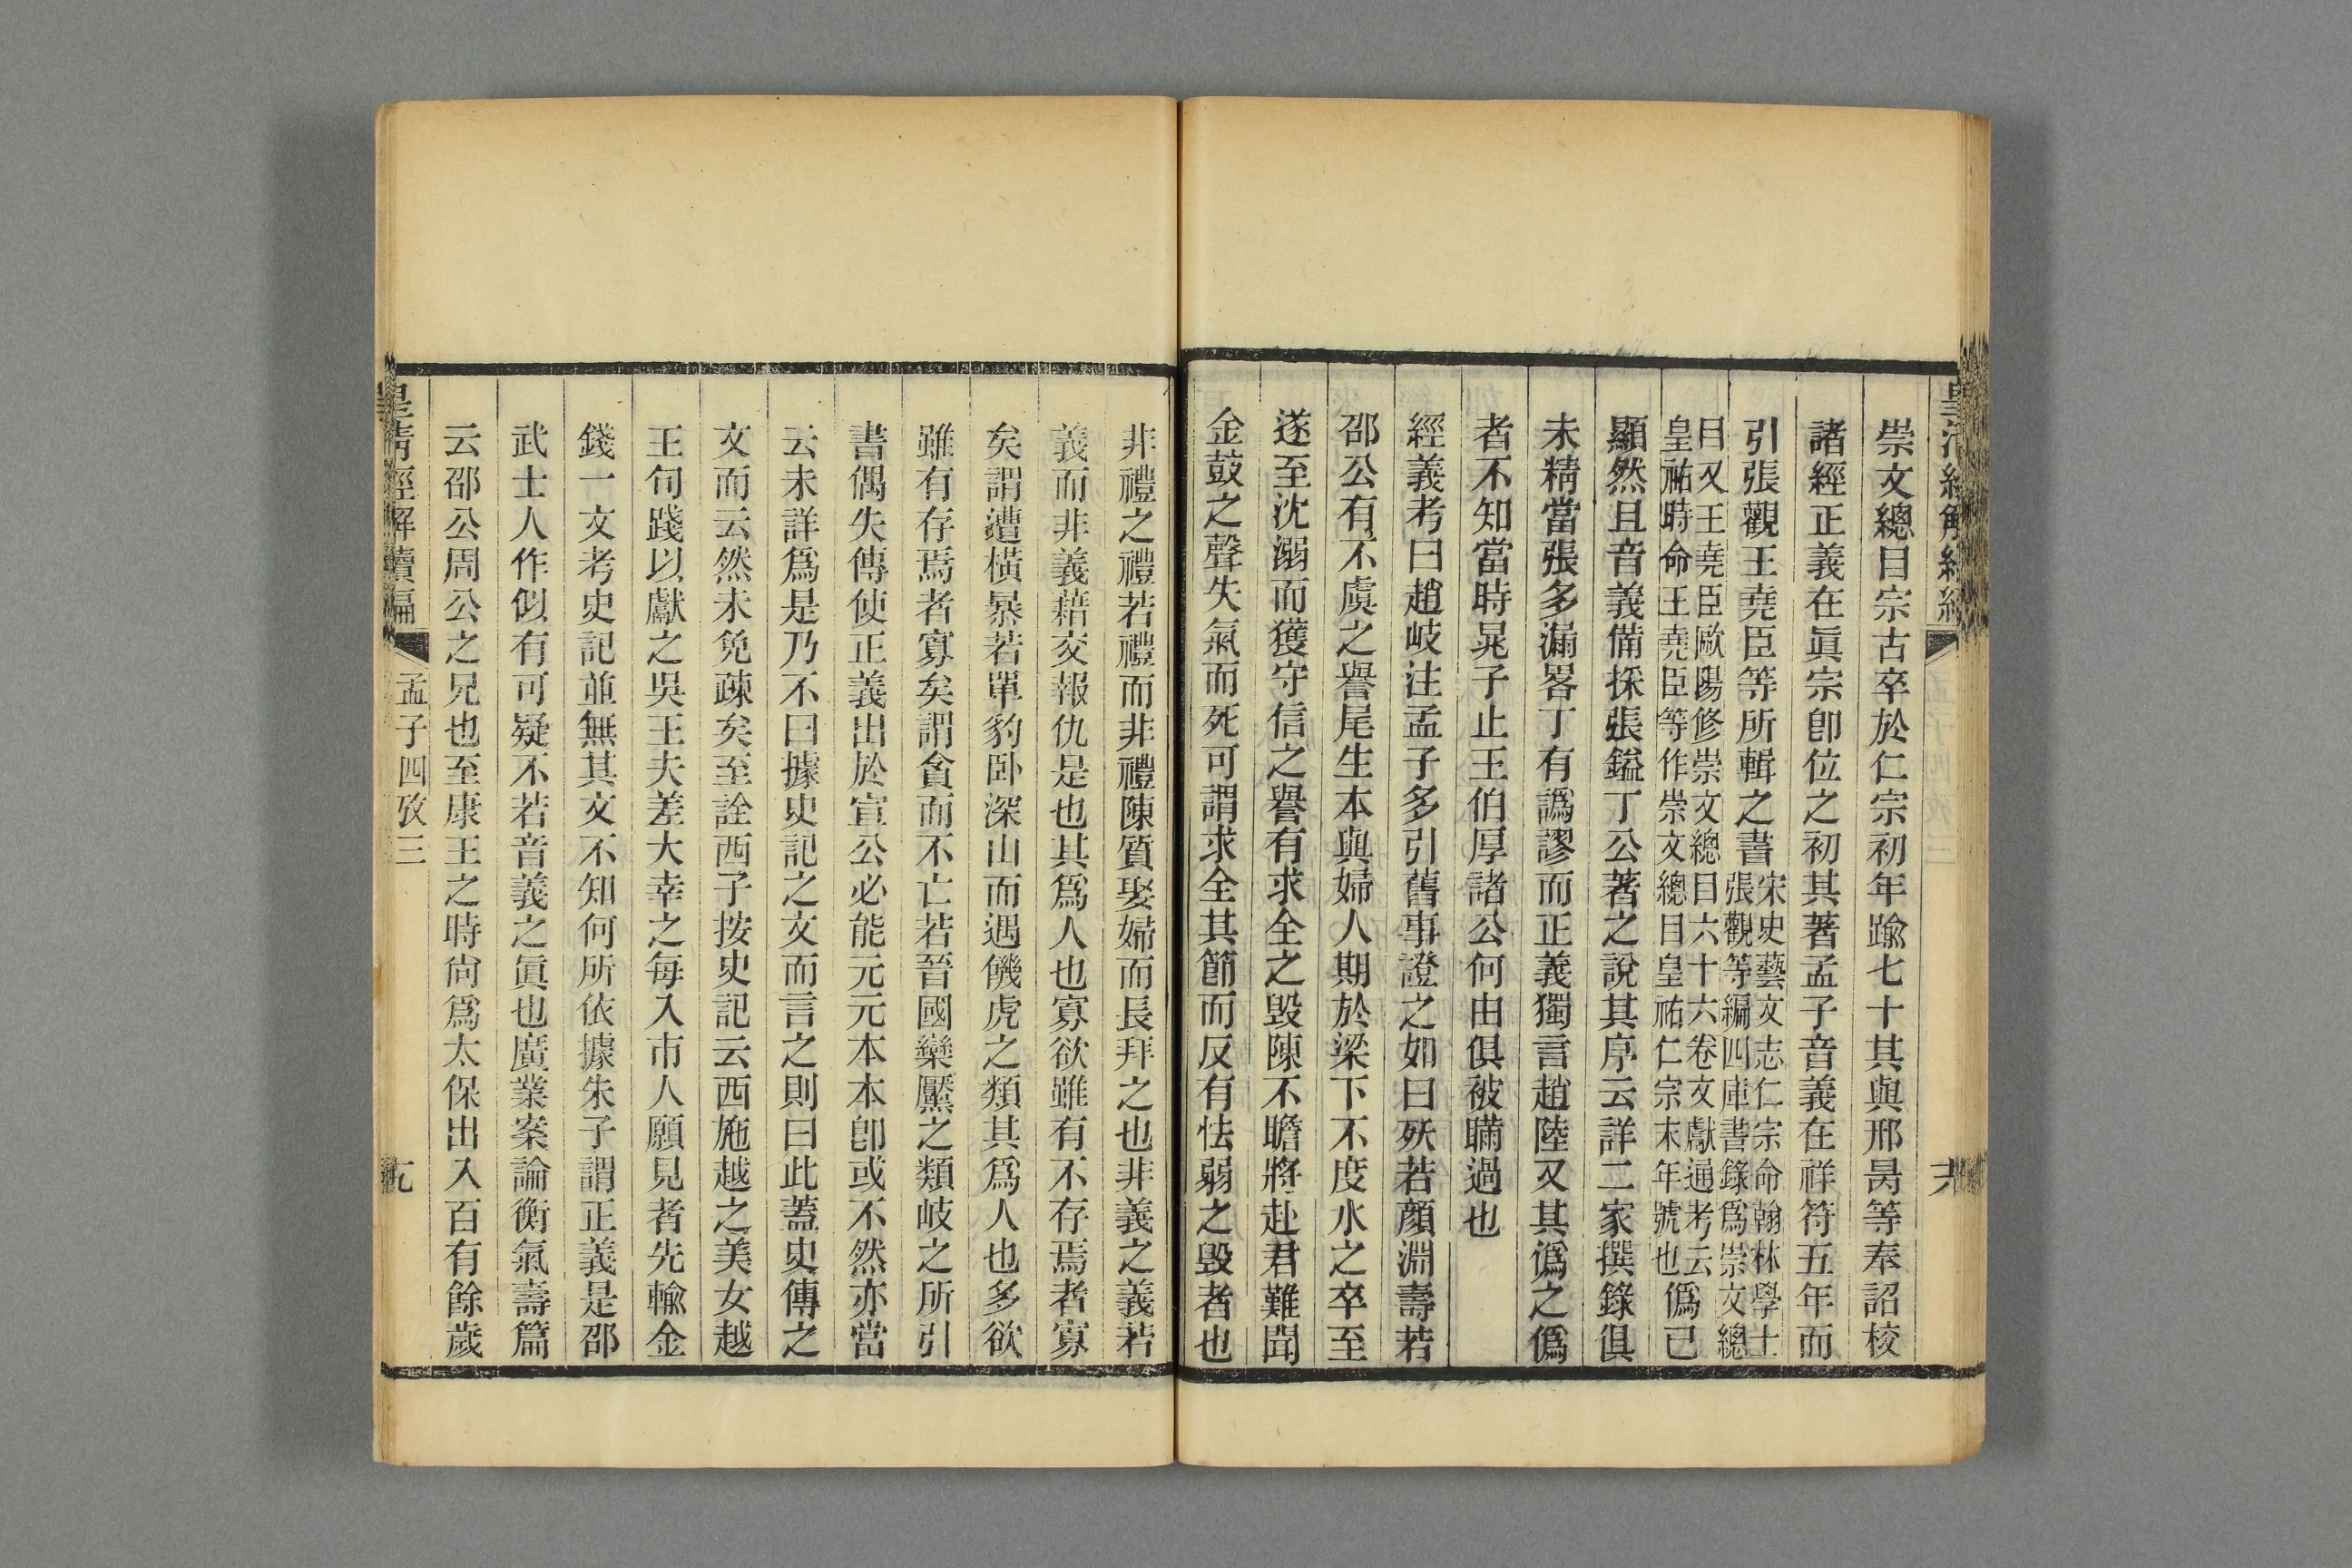 崇文總目宗古卒於仁宗初年踰七十其與邢昺等奉詔校
諸經正義在眞宗卽位之初其著孟子音義在祥符五年而
引張觀王堯臣等所輯之書宋史藝文志仁宗命翰林學士張觀等編四庫書錄爲崇文總
目又王堯臣歐陽修崇文總目六十六卷文獻通考云皇祐時命王堯臣等作崇文總目皇祐仁宗末年號也僞已
顯然且音義備採張鎰丁公著之說其序云詳二家撰錄俱
未精當張多漏畧丁有譌謬而正義獨言趙陸又其僞之僞
者不知當時晁子止王伯厚諸公何由俱被瞞過也
經義考曰趙岐注孟子多引舊事證之如曰殀若顏淵壽若
邵公有不虞之譽尾生本與婦人期於梁下不度水之卒至
遂至沈溺而獲守信之譽有求全之毁陳不瞻將赴君難聞
金鼓之聲失氣而死可謂求全其節而反有怯弱之毁者也
非禮之禮若禮而非禮陳質娶婦而長拜之也非義之義若
義而非義藉交報仇是也其爲人也寡欲雖有不存焉者寡
矣謂遭橫暴若單豹卧深山而遇饑虎之類其爲人也多欲
雖有存焉者寡矣謂貪而不亡若晉國欒黶之類岐之所引
書偶失傳使正義出於宣公必能元元本本卽或不然亦當
云未詳爲是乃不曰據史記之文而言之則曰此蓋史傳之
文而云然未免疎矣至詮西子按史記云西施越之美女越
王句踐以獻之吳王夫差大幸之每入市人願見者先輸金
錢一文考史記並無其文不知何所依據朱子謂正義是邵
武士人作似有可疑不若音義之眞也廣業案論衡氣壽篇
云邵公周公之兄也至康王之時尙爲太保出入百有餘歲
皇清經解續編
孟子四攷三